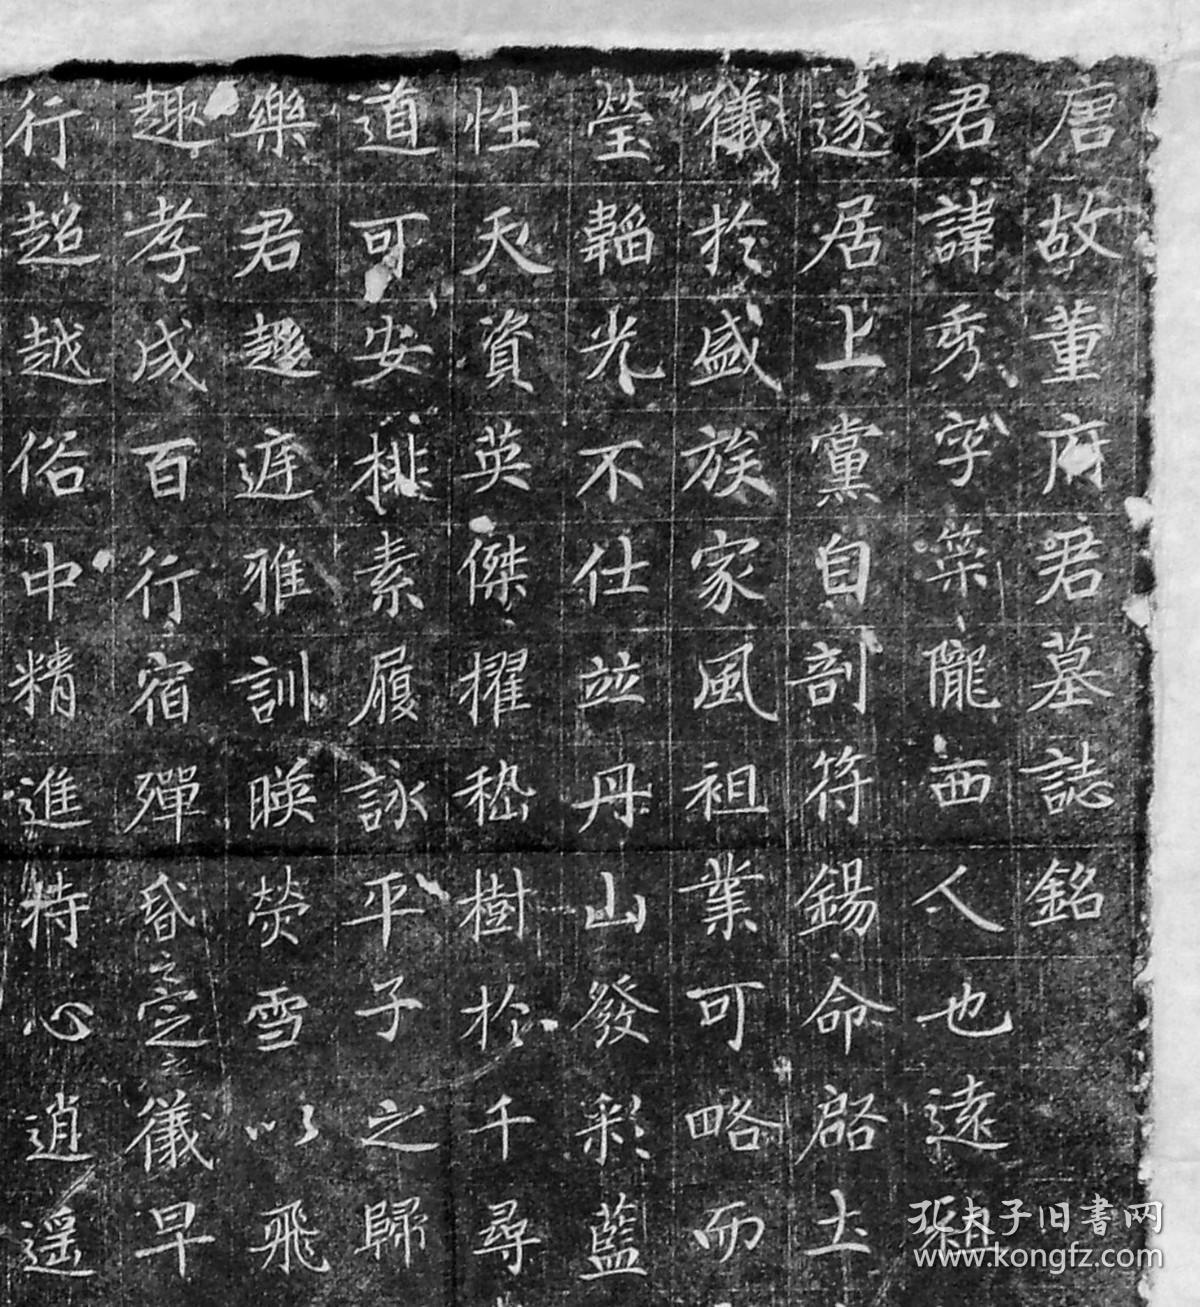 唐故董府君墓誌銘
君諱秀字榮隴西人也遠祖
遂居上黨自剖符錫命啓土
儀於盛族家風祖業可略而
瑩韜光不仕並丹山發彩藍
性天資英傑擢嵇樹於千尋
道可安棑素履詠平子之歸
樂君趍遊雅訓暎熒雪以飛
趣孝成百行宿殫昏定之儀早
行超越俗中精進持心逍遥
孔夫子旧書网
www.kongfz.com